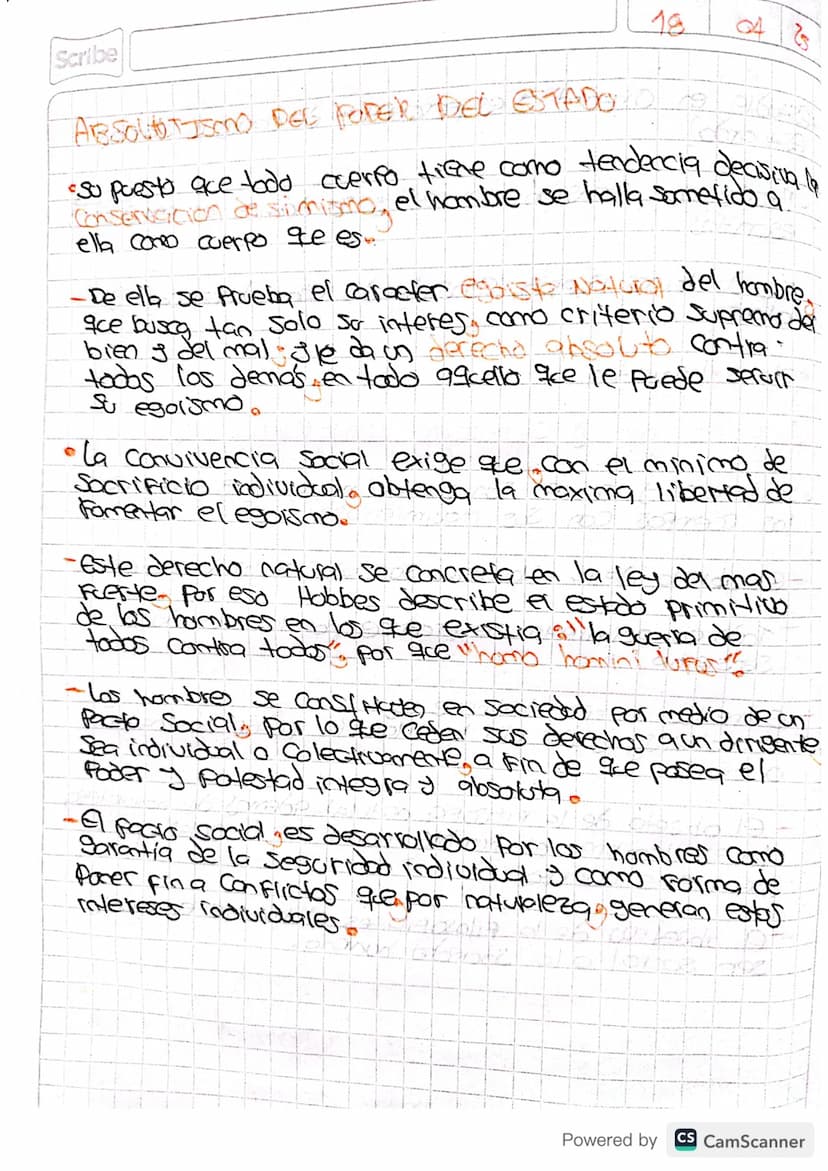 18 04 25
Scribe
ABSOLUTISMO DEL PODER DEL ESTADO
• Supuesto que todo cuerpo tiene como tendencia decisiva la
conservación de si mismo, el hombre se halla sometido a
ella como cuerpo que es.
- De ella se prueba el caracter egoista natural del hombre,
que busca tan solo su interes, como criterio supremo del
bien y del mal; y le da un derecho absoluto contra
todos los demás, en todo aquello que le puede servir
su egoísmo.
• La convivencia social exige que, con el minimo de
sacrificio individual, obtenga la maxima libertad de
fomentar el egoismo.
- Este derecho natural se concreta en la ley del mas
fuerte, por eso Hobbes describe el estado primitivo
de los hombres en los que existia: "la guerra de
todos contra todos", por que "homo homini lupus".
- Los hombres se constituyen en sociedad por medio de un
Pacto Social, por lo que ceden sus derechos a un dirigente
sea individual o colectivamente, a fin de que posea el
poder y potestad integra y absoluta.
- El pacto social, es desarrollado por los hombres como
garantía de la seguridad individual y como forma de
poner fin a conflictos que, por naturaleza, generan estos
intereses individuales.
Powered by CS CamScanner